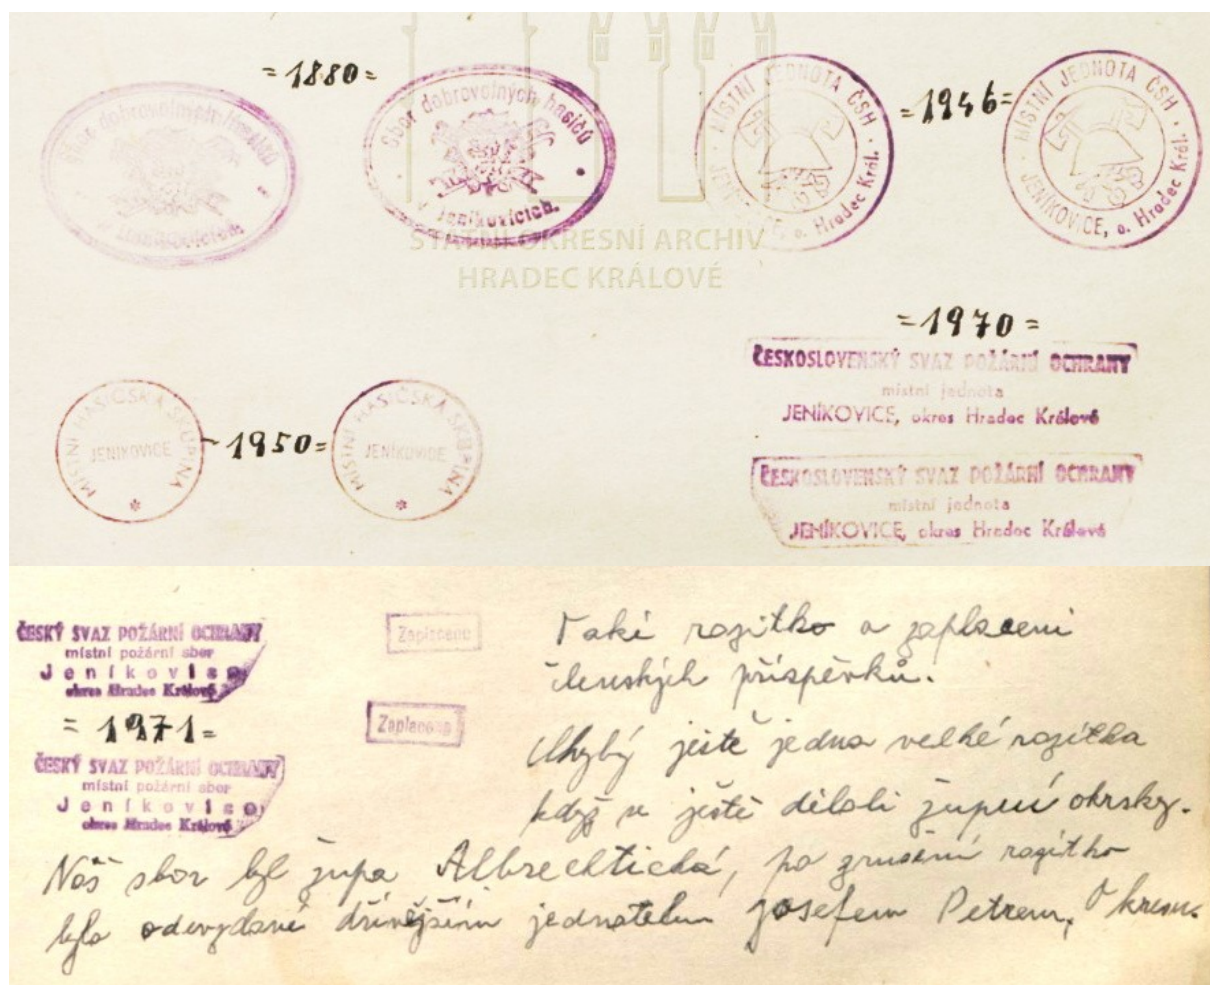 =1880=
Sbor dobrovolných hasičů
v Jeníkovicích.
Sbor dobrovolných hasičů
v Jeníkovicích.
=1946=
MÍSTNÍ JEDNOTA ČSH
JENÍKOVICE, o. Hradec Král.
MÍSTNÍ JEDNOTA ČSH
JENÍKOVICE, o. Hradec Král.
STÁTNÍ OKRESNÍ ARCHIV
HRADEC KRÁLOVÉ
MÍSTNÍ HASIČSKÁ SKUPINA
JENÍKOVICE
-1950=
MÍSTNÍ HASIČSKÁ SKUPINA
JENÍKOVICE
=1970=
ČESKOSLOVENSKÝ SVAZ POŽÁRNÍ OCHRANY
místní jednota
JENÍKOVICE, okres Hradec Králové
ČESKOSLOVENSKÝ SVAZ POŽÁRNÍ OCHRANY
místní jednota
JENÍKOVICE, okres Hradec Králové
ČESKÝ SVAZ POŽÁRNÍ OCHRANY
místní požární sbor
Jeníkovice
okres Hradec Králové
=1971=
ČESKÝ SVAZ POŽÁRNÍ OCHRANY
místní požární sbor
Jeníkovice
okres Hradec Králové
Zaplaceno
Zaplaceno
Také razítko o zaplacení
členských příspěvků.
Chybý ještě jedno velké razítka
když se ještě dělali župní okrsky.
Náš sbor byl župa Albrechtická, po zrušení razítko
bylo odevzdané dřívějším jednatelem Josefem Petrem,